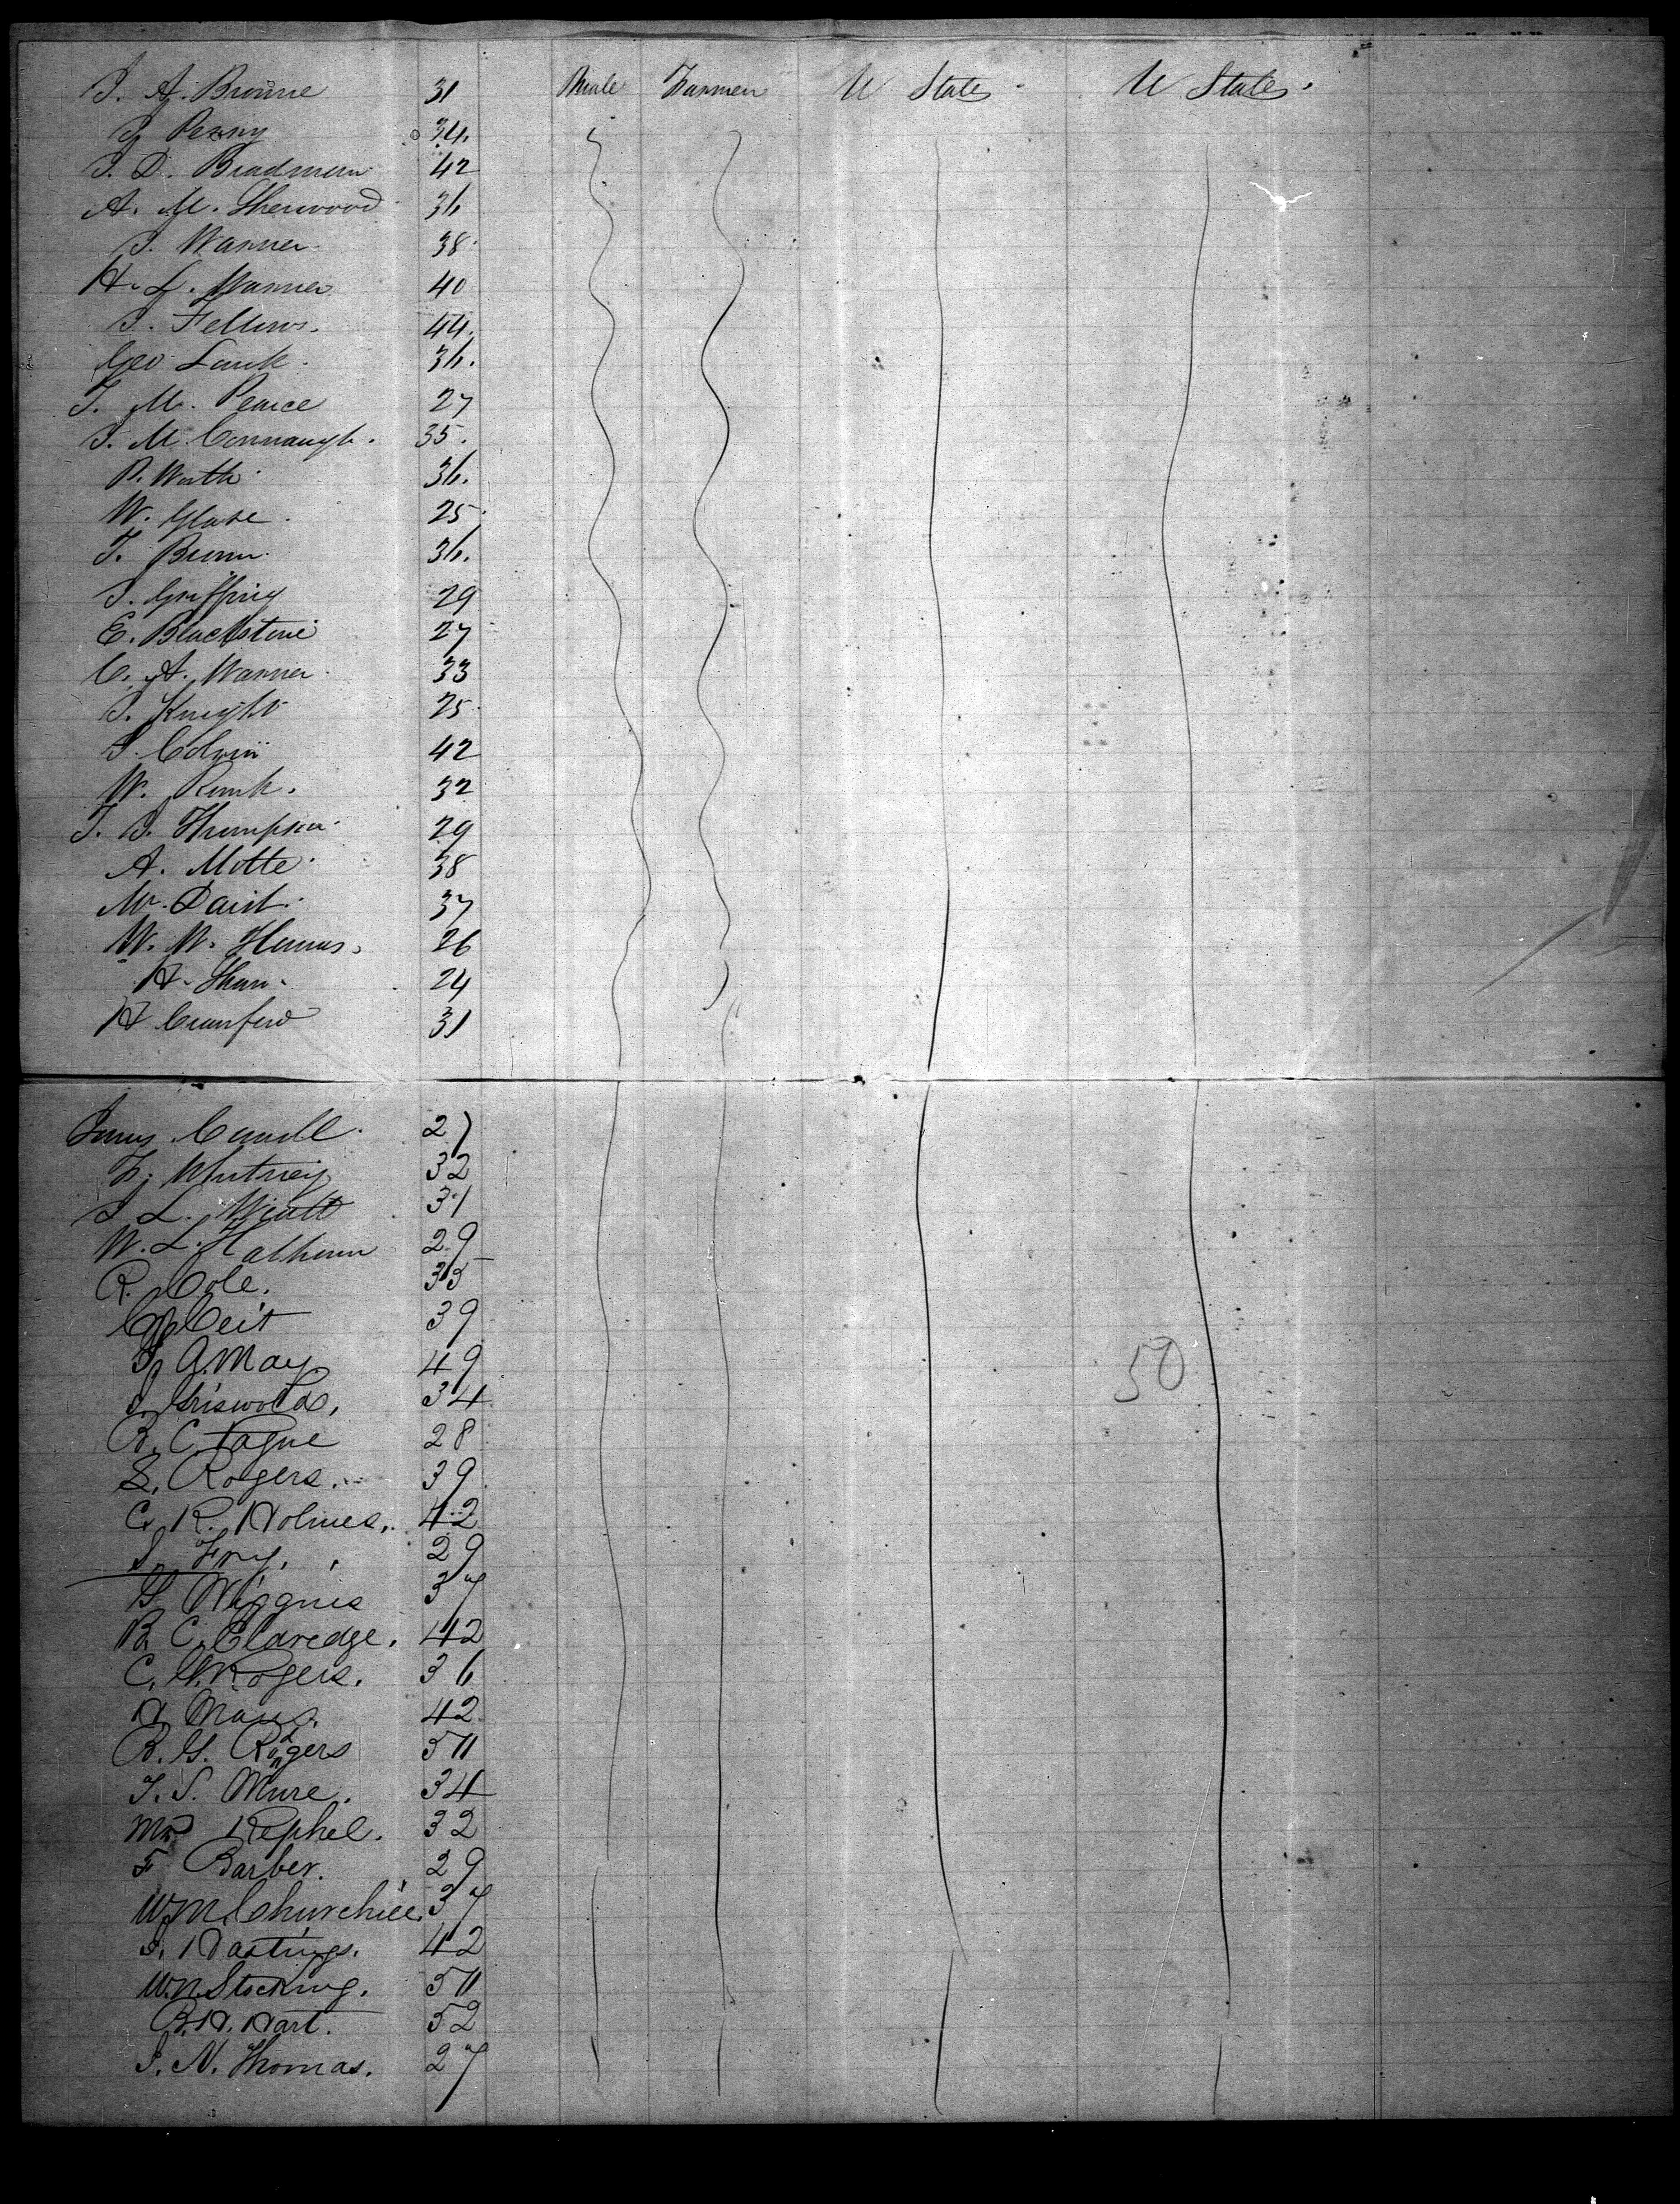 J. A. Browne 31 Male Farmer U State. U States.
J Penny 34.
J. D. Bradmun 42
A. M. Sherwood 36
J. Warner 38
H. L. Warner 40
J. Fellows. 44.
Geo Lauk. 36.
T. M. Pearce 27
J. M. Connaugh. 35.
P. Worth 36.
W. Glase. 25
T. Brown. 36.
J. Griffing 29
E. Blackstone 27
C. A. Warner. 33
J. Knight 25
J. Colvin 42
W. Runk. 32
T. B. Thompson 29
A. Motte 38
M. David. 37
W. W. Humes. 26
H. Shaw. 24
H Crawford 31
27
Whitney 32
J L. Wiatt 31
W. L. Halhoun 29
R. Cole. 35
Ceit 39
A. May 49
J. Griswold, 34
B. C. Tague 28
S. Rogers. 39
C. R. Holmes. 42
S. Fry. 29
G. Wiggins 37
B. C. Claredge. 42
C. G. Rogers. 36
H. Maus. 42
B. G. Rogers 511
T. S. Mure. 34
Mr Kephel. 32
F Barber. 29
Wm Churchill. 37
J. Hastings. 42
W. N. Stocking. 511
B. H. Hart. 52
J. N. Thomas. 27
50